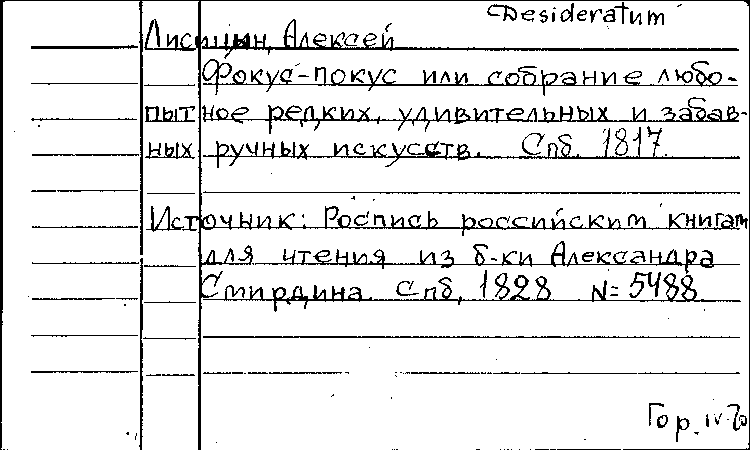 Desideratum
Лисицын, Алексей
Фокус-покус или собрание любо-
пытное редких, удивительных и забав-
ных ручных искусств. Спб. 1817.
Источник: Роспись российским книгам
для чтения из б-ки Александра
Смирдина. Спб, 1828 N= 5488
Гор. IV-70